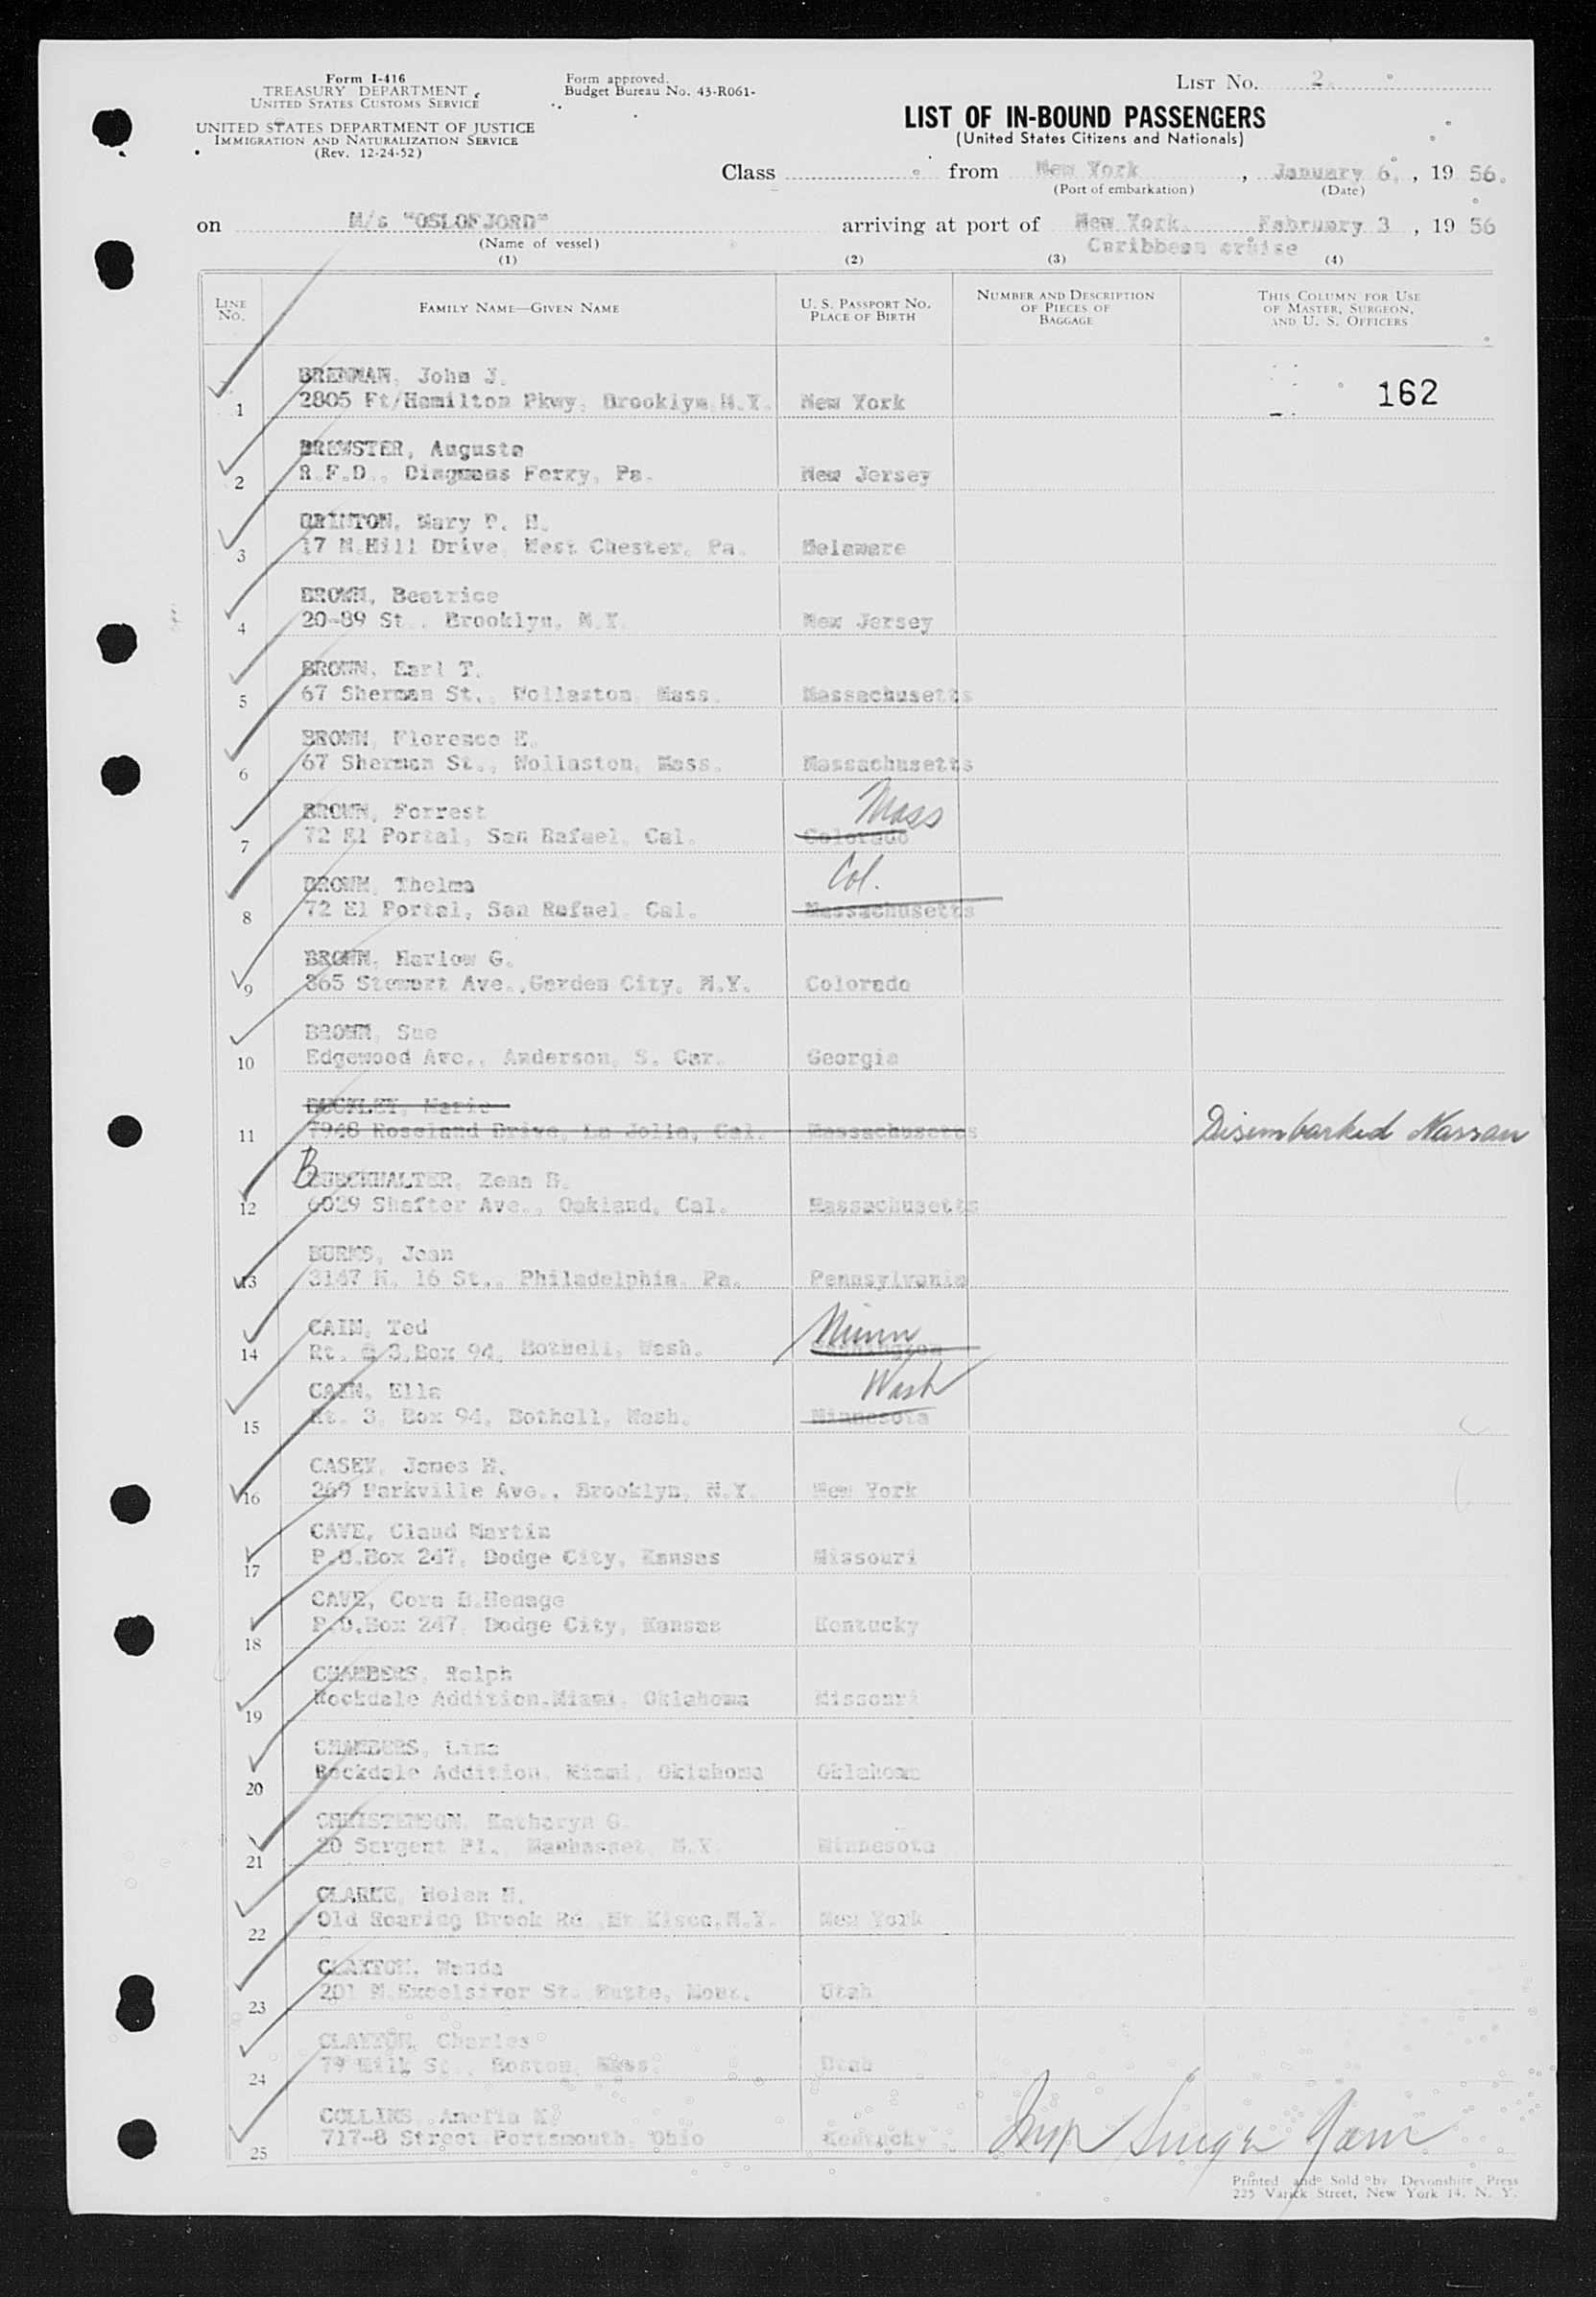 Form I-416
TREASURY DEPARTMENT
UNITED STATES CUSTOMS SERVICE
UNITED STATES DEPARTMENT OF JUSTICE
IMMIGRATION AND NATURALIZATION SERVICE
(Rev. 12-24-52)
Form approved.
Budget Bureau No. 43-R061-
LIST No. 2
LIST OF IN-BOUND PASSENGERS
(United States Citizens and Nationals)
Class from New York, January 6, 1956.
(Port of embarkation) (Date)
on M/s "OSLOFJORD" arriving at port of New York. February 3, 1956
(Name of vessel) Caribbean cruise
(1) (2) (3) (4)
LINE No. FAMILY NAME—GIVEN NAME U. S. PASSPORT NO. PLACE OF BIRTH NUMBER AND DESCRIPTION OF PIECES OF BAGGAGE THIS COLUMN FOR USE OF MASTER, SURGEON, AND U. S. OFFICERS
BRENNAN, John J.
1 2805 Ft/Hamilton Pkwy, Brooklyn N.Y. New York 162
BREWSTER, Augusta
2 R.F.D., Dingmans Ferry, Pa. New Jersey
BRINTON, Mary P. H.
3 17 N.Hill Drive, West Chester, Pa. Delaware
BROWN, Beatrice
4 20-89 St., Brooklyn, N.Y. New Jersey
BROWN, Earl T.
5 67 Sherman St., Wollaston, Mass. Massachusetts
BROWN, Florence E.
6 67 Sherman St., Wollaston, Mass. Massachusetts
BROWN, Forrest Mass
7 72 El Portal, San Rafael, Cal. Colorado
BROWN, Thelma Col.
8 72 El Portal, San Rafael, Cal. Massachusetts
BROWN, Harlow G.
9 865 Stewart Ave.,Garden City, N.Y. Colorado
BROWN, Sue
10 Edgewood Ave., Anderson, S. Car. Georgia
BUCKLEY, Marie
11 7948 Roseland Drive, La Jolla, Cal. Massachusetts Disembarked Nassau
B BUECKHALTER, Zena B.
12 6029 Shafter Ave., Oakland, Cal. Massachusetts
BURNS, Jean
13 3147 N. 16 St., Philadelphia, Pa. Pennsylvania
CAIN, Ted Minn
14 Rt. 3,Box 94, Bothell, Wash. Washington
CAIN, Ella Wash
15 Rt. 3, Box 94, Bothell, Wash. Minnesota
CASEY, James H.
16 269 Parkville Ave., Brooklyn, N.Y. New York
CAVE, Claud Martin
17 P.O.Box 247, Dodge City, Kansas Missouri
CAVE, Cora B.Henage
18 P.O.Box 247, Dodge City, Kansas Kentucky
CHAMBERS, Ralph
19 Rockdale Addition,Miami, Oklahoma Missouri
CHAMBERS, Lina
20 Rockdale Addition, Miami, Oklahoma Oklahoma
CHRISTENSON, Katharyn G.
21 20 Sargent Pl. Manhasset, N.Y. Minnesota
CLARKE, Helen M.
22 Old Roaring Brook Rd.,Mt Kisco,N.Y. New York
CLAXTON, Wanda
23 201 N.Excelsiror St. Butte, Mont. Utah
CLAYTON, Charles
24 79 Milk St., Boston, Mass. Utah
COLLINS, Amelia K.
25 717-8 Street Portsmouth, Ohio Kentucky
Printed and Sold by Devonshire Press
225 Varick Street, New York 14, N. Y.